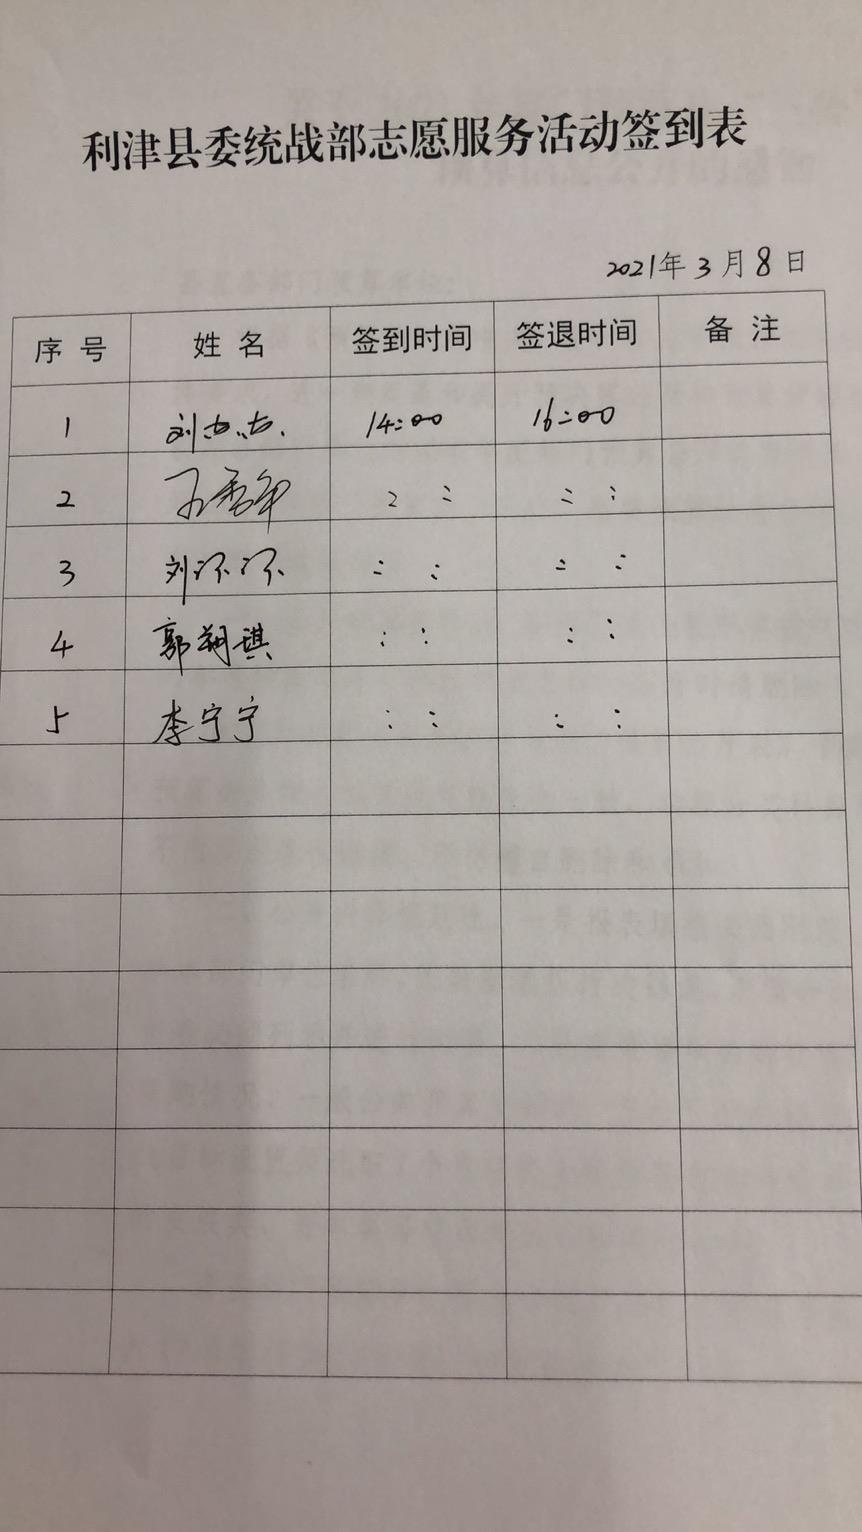 利津县委统战部志愿服务活动签到表
2021年3月8日
序号 姓名 签到时间 签退时间 备注
1 刘 14:00 16:00
2
3 刘环环
4 郭翔琪
5 李宁宁